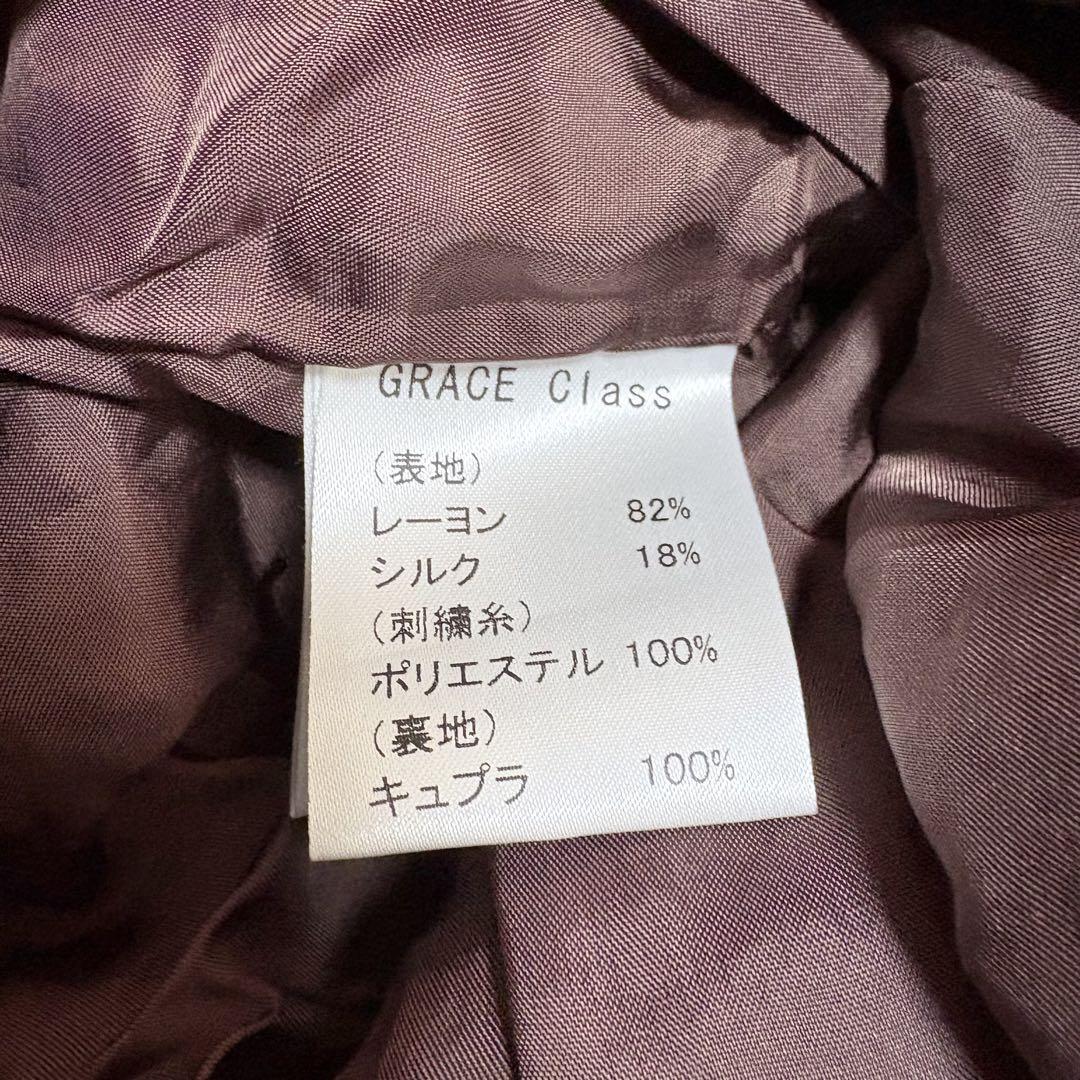 GRACE Class
(表地)
レーヨン 82%
シルク 18%
(刺繍糸)
ポリエステル 100%
(裏地)
キュプラ 100%